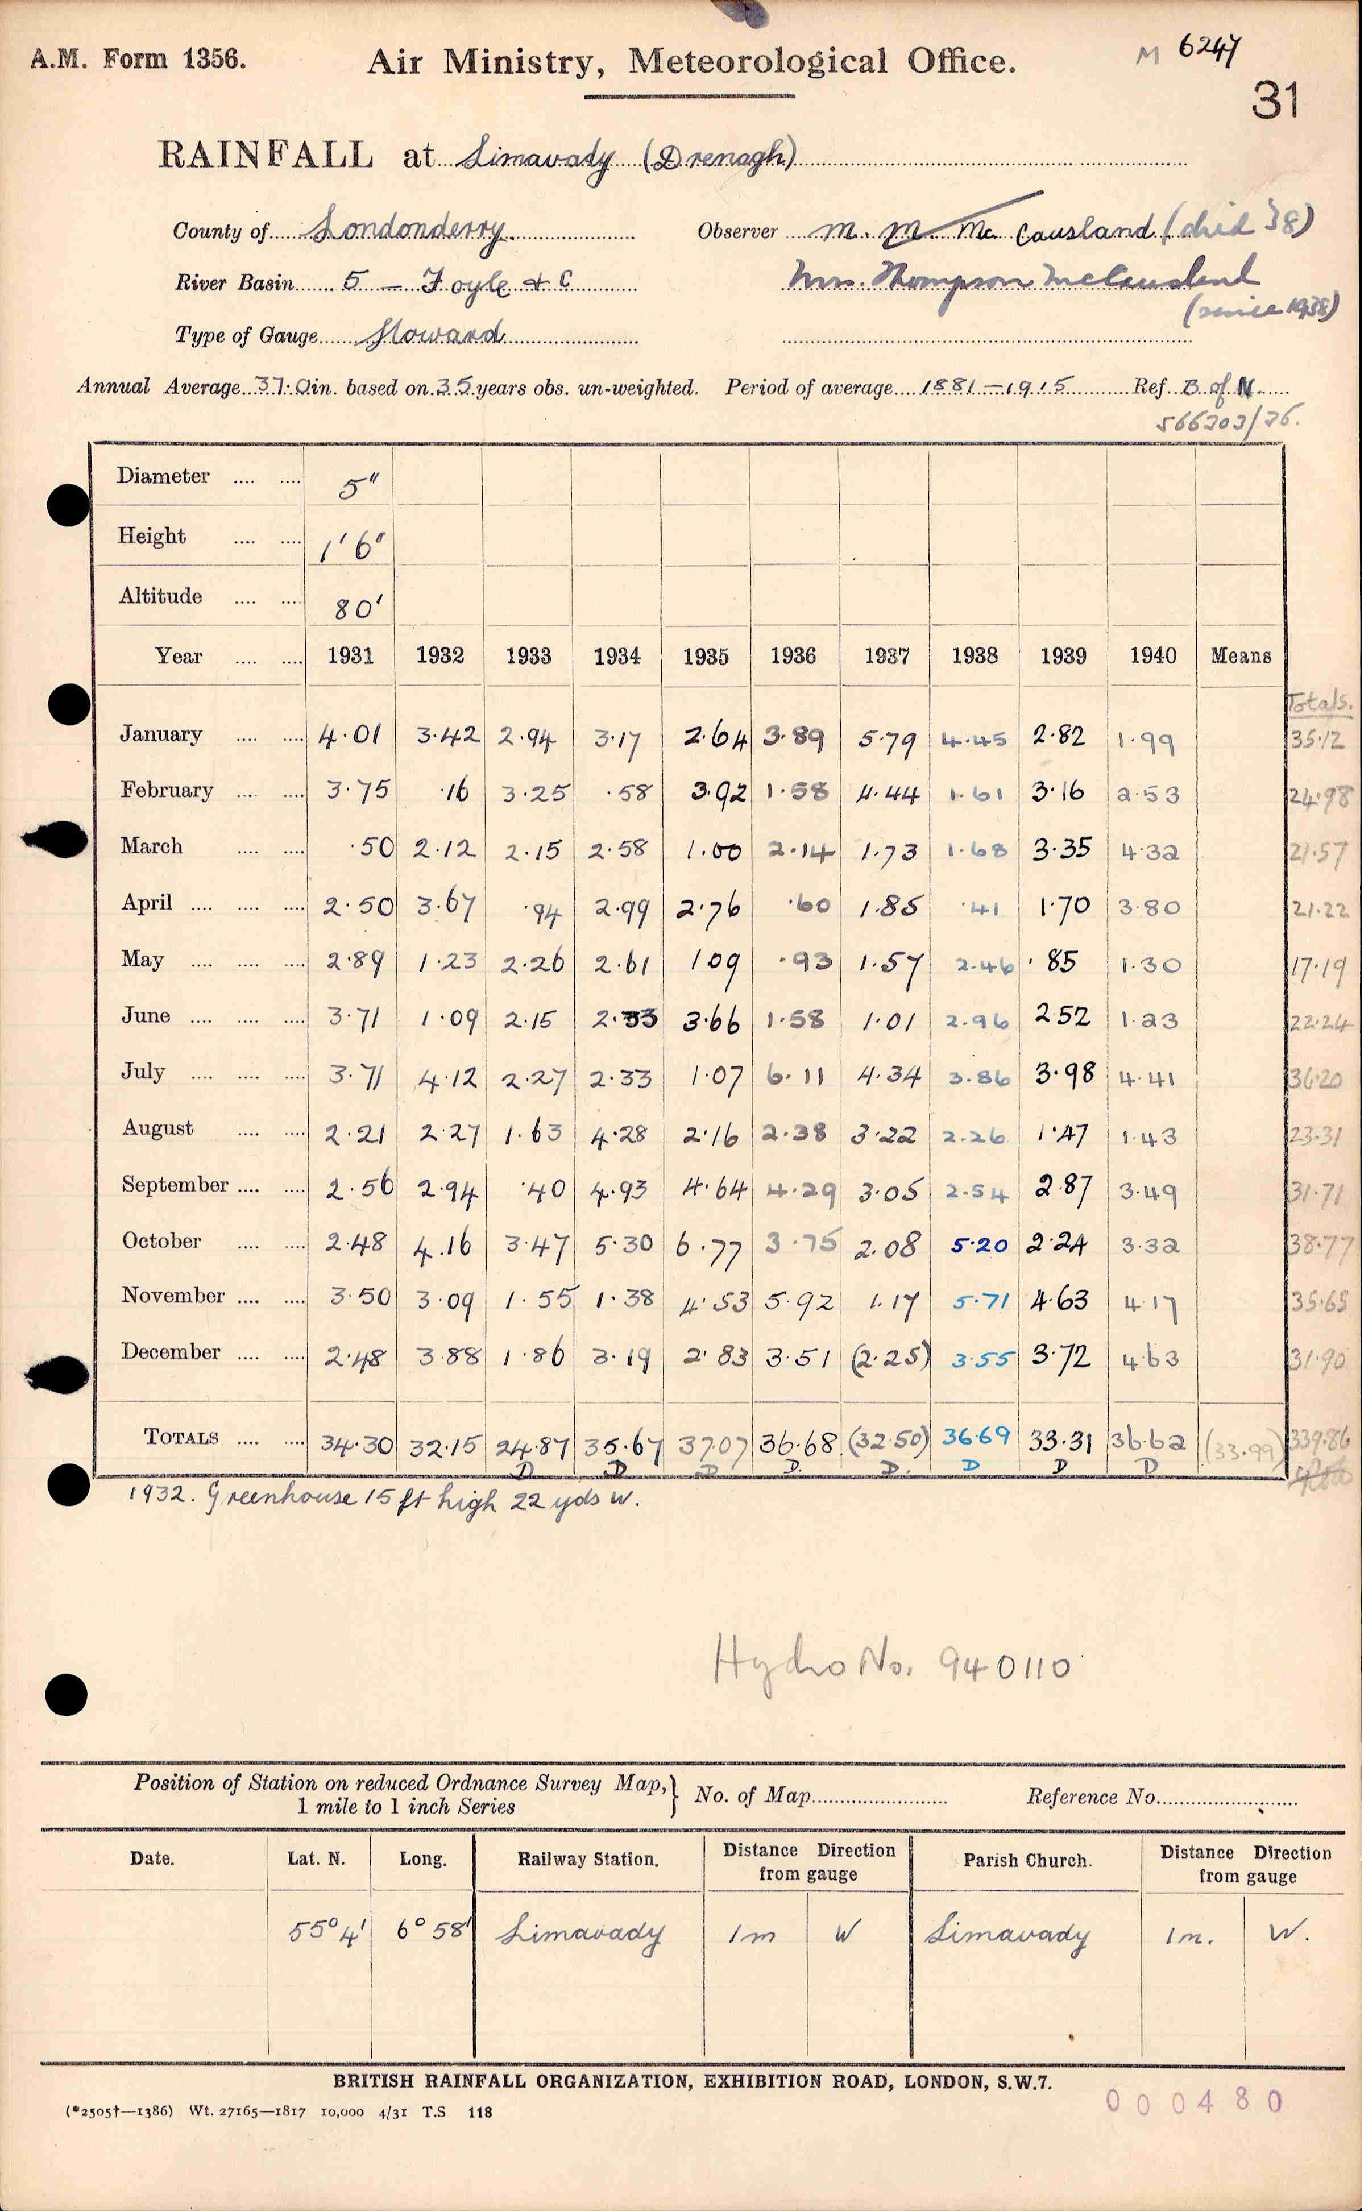 A.M. Form 1356. Air Ministry, Meteorological Office. M 6247
31
RAINFALL at Limavady (Drenagh)
County of Londonderry Observer M. M. Mc Causland (died 38)
River Basin 5 – Foyle & C Mrs. Thompson McCausland
(since 1938)
Type of Gauge Howard
Annual Average 37.0 in. based on 35 years obs. un-weighted. Period of average 1881–1915 Ref. B of N.
566203/36.
Diameter .... .... 5"
Height .... .... 1'6"
Altitude .... .... 80'
Year .... .... 1931 1932 1933 1934 1935 1936 1937 1938 1939 1940 Means
Totals.
January .... .... 4.01 3.42 2.94 3.17 2.64 3.89 5.79 4.45 2.82 1.99 35.12
February .... .... 3.75 .16 3.25 .58 3.92 1.58 4.44 1.61 3.16 2.53 24.98
March .... .... .50 2.12 2.15 2.58 1.00 2.14 1.73 1.68 3.35 4.32 21.57
April .... .... .... 2.50 3.67 .94 2.99 2.76 .60 1.85 .41 1.70 3.80 21.22
May .... .... .... 2.89 1.23 2.26 2.61 1 09 .93 1.57 2.46 .85 1.30 17.19
June .... .... .... 3.71 1.09 2.15 2.33 3.66 1.58 1.01 2.96 2 52 1.23 22.24
July .... .... .... 3.71 4.12 2.27 2.33 1.07 6.11 4.34 3.86 3.98 4.41 36.20
August .... .... 2.21 2.27 1.63 4.28 2.16 2.38 3.22 2.26 1.47 1.43 23.31
September .... .... 2.56 2.94 .40 4.93 4.64 4.29 3.05 2.54 2.87 3.49 31.71
October .... .... 2.48 4.16 3.47 5.30 6.77 3.75 2.08 5.20 2.24 3.32 38.77
November .... .... 3.50 3.09 1.55 1.38 4.53 5.92 1.17 5.71 4.63 4.17 35.65
December .... .... 2.48 3.88 1.86 3.19 2.83 3.51 (2.25) 3.55 3.72 4.63 31.90
TOTALS .... .... 34.30 32.15 24.87 35.67 37.07 36.68 (32.50) 36.69 33.31 36.62 (33.99) 339.86
D D D D. D. D D D
1932. Greenhouse 15 ft high 22 yds W.
Hydro No. 940110
Position of Station on reduced Ordnance Survey Map, 1 mile to 1 inch Series } No. of Map Reference No.
Date. Lat. N. Long. Railway Station. Distance Direction from gauge Parish Church. Distance Direction from gauge
55° 4' 6° 58' Limavady 1m W Limavady 1m. W.
BRITISH RAINFALL ORGANIZATION, EXHIBITION ROAD, LONDON, S.W.7.
(*2505†—1386) Wt. 27165—1817 10,000 4/31 T.S 118
000480